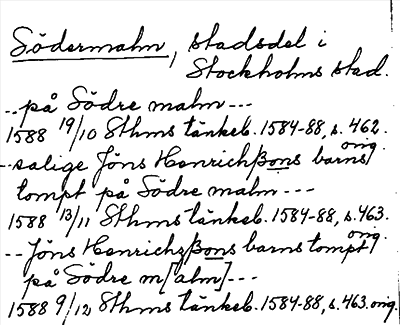 Södermalm, stadsdel i
Stockholms stad.
-- på Södre malm ---
1588 19/10 Sthms tänkeb. 1584-88, s. 462.
-- salige Jöns Henrichßons barns orig.
tompt på Södre malm ---
1588 13/11 Sthms tänkeb. 1584-88, s. 463.
-- Jöns Henrichsßons barns tompt orig.
på Södre m[alm] ---
1588 9/12 Sthms tänkeb. 1584-88, s. 463. orig.